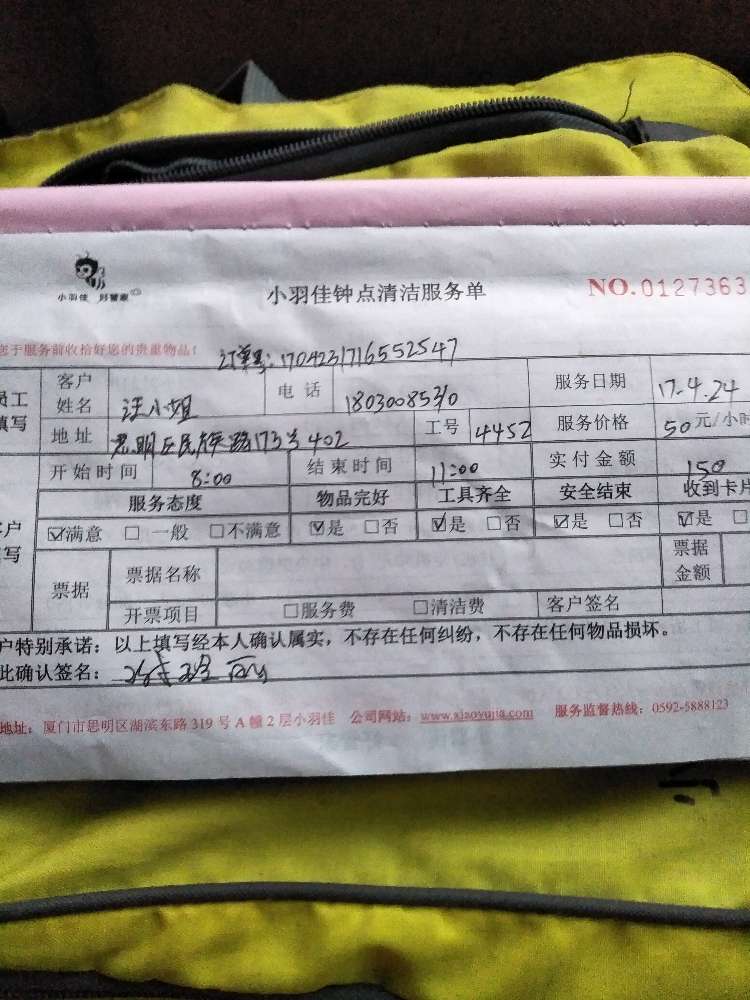 小羽佳 好管家
小羽佳钟点清洁服务单
NO.0127363
您于服务前收拾好您的贵重物品!
订单号:1704231716552547
员工填写
客户姓名 汪小姐 电话 1803008530 服务日期 17.4.24
地址 思明区民族路173号402 工号 4452 服务价格 50元/小时
开始时间 8:00 结束时间 11:00 实付金额 150
客户填写
服务态度 物品完好 工具齐全 安全结束 收到卡片
☑满意 □一般 □不满意 ☑是 □否 ☑是 □否 ☑是 □否 ☑是 □
票据 票据名称 票据金额
开票项目 □服务费 □清洁费 客户签名
户特别承诺:以上填写经本人确认属实,不存在任何纠纷,不存在任何物品损坏。
此确认签名:
地址:厦门市思明区湖滨东路319号A幢2层小羽佳 公司网站:www.xiaoyujia.com 服务监督热线:0592-5888123